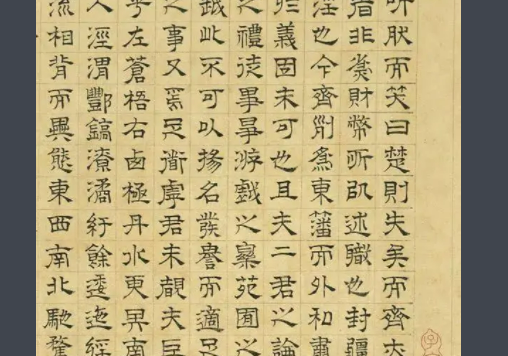 听肰而笑曰楚則失矣而齊亦
者非為財幣所以述職也封疆
淫也今齊列為東藩而外私肅
於義固未可也且夫二君之論
之禮徒事爭游戲之樂苑囿之
越此不可以揚名發譽而適足
之事又焉足道虖君未覩夫巨
乎左蒼梧右西極丹水更其南
入涇渭酆鎬潦潏紆餘逶迤經
流相背而異態東西南北馳騖